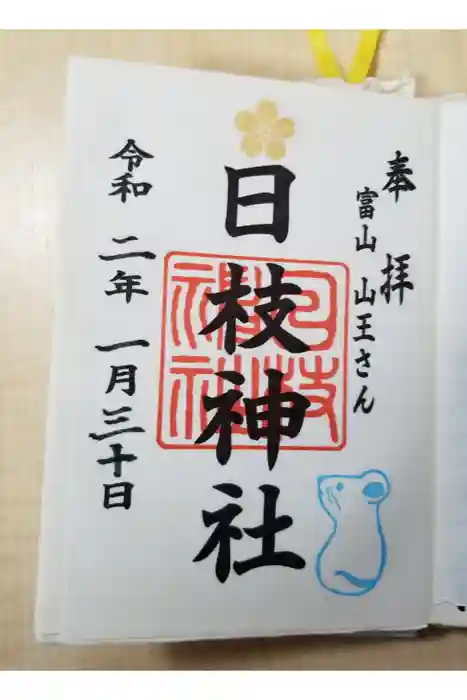 奉拝
富山 山王さん
日枝神社
日枝神社
令和二年一月三十日